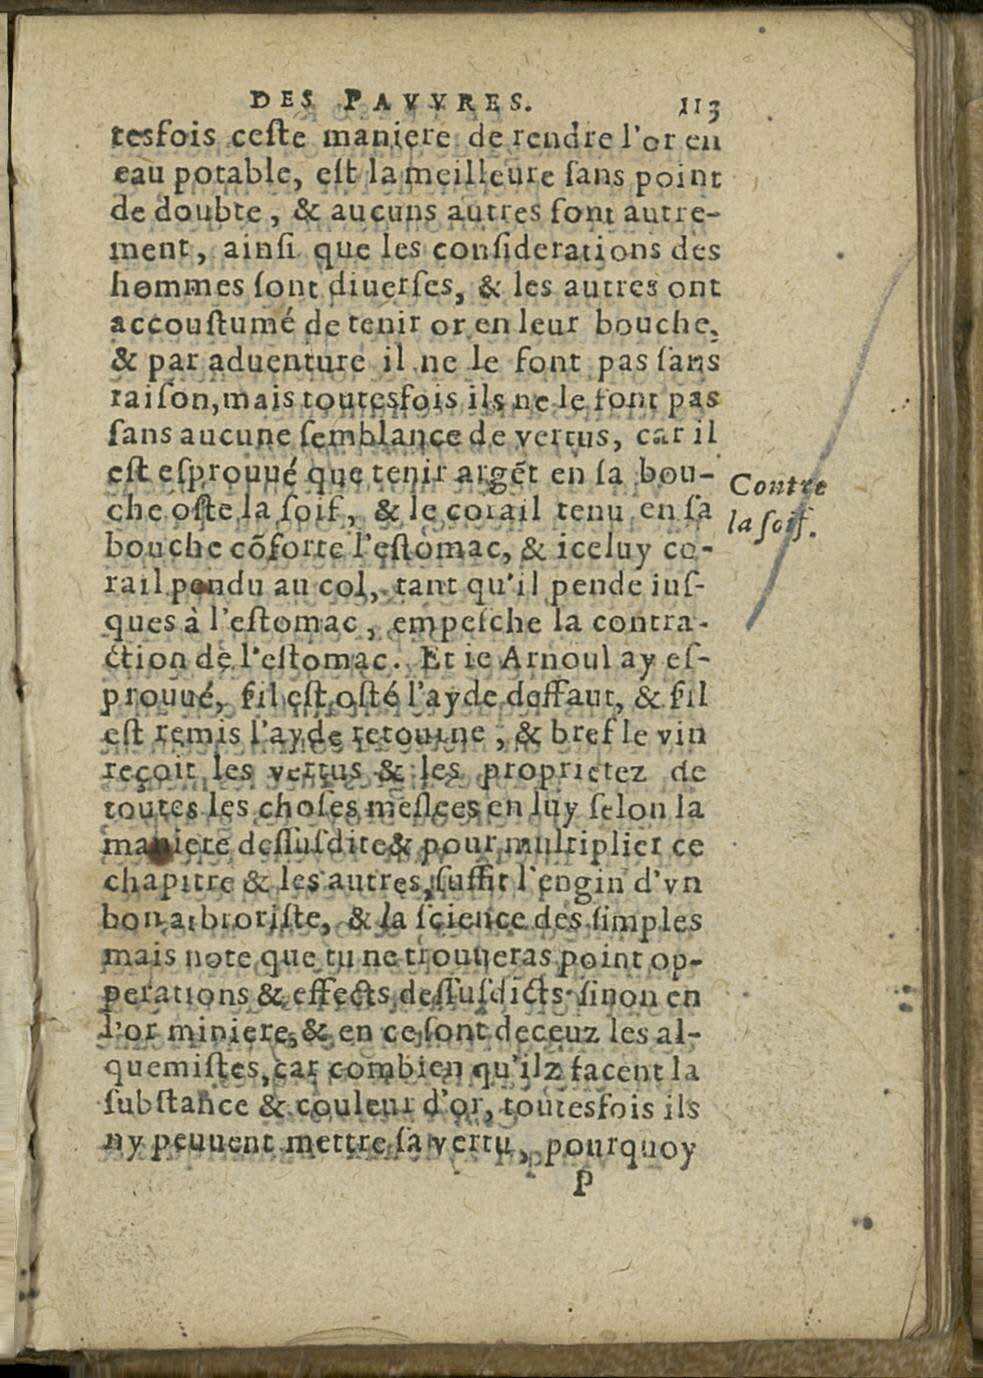 DES PAVVRES. 113
tesfois ceſte maniere de rendre l'or en
eau potable, eſt la meilleure ſans point
de doubte, & aucuns autres ſont autre-
ment, ainſi que les conſiderations des
hommes ſont diuerſes, & les autres ont
accouſtumé de tenir or en leur bouche,
& par aduenture il ne le font pas ſans
raiſon, mais toutesfois ils ne le font pas
ſans aucune ſemblance de vertus, car il
eſt eſprouué que tenir argẽt en ſa bou-
che oſte la ſoif, & le corail tenu en ſa
bouche cõforte l'eſtomac, & iceluy co-
rail pendu au col, tant qu'il pende iuſ-
ques à l'eſtomac, empeſche la contra-
ction de l'eſtomac. Et ie Arnoul ay eſ-
prouué, ſil eſt oſté l'ayde deffaut, & ſil
eſt remis l'ayde retourne, & bref le vin
reçoit les vertus & les proprietez de
toutes les choſes meſlees en luy ſelon la
maniere deſſuſdite & pour multiplier ce
chapitre & les autres, ſuffit l'engin d'vn
bon arbroriſte, & la ſcience des ſimples
mais note que tu ne trouueras point op-
perations & effects deſſuſdicts ſinon en
l'or miniere, & en ce ſont deceuz les al-
quemiſtes, car combien qu'ilz facent la
ſubſtance & couleur d'or, toutesfois ils
ny peuuent mettre ſa vertu, pourquoy
P
Contre
la ſoif.